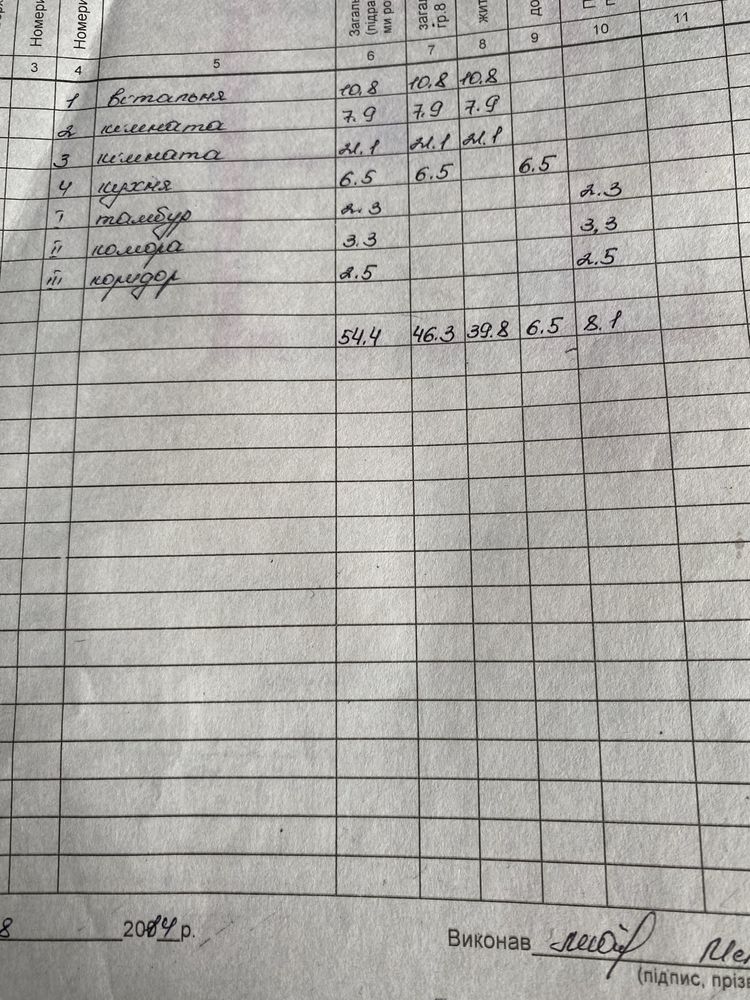 Номери
Номери
Загаль
(підра
ми ро
зага
гр.8
жит
до
3 4 5 6 7 8 9 10 11
1 вітальня 10.8 10.8 10.8
2 кімната 7.9 7.9 7.9
3 кімната 21.1 21.1 21.1
4 кухня 6.5 6.5 6.5
I тамбур 2.3 2.3
II комора 3.3 3,3
III коридор 2.5 2.5
54.4 46.3 39.8 6.5 8.1
8 2004 р.
Виконав
(підпис, прізв